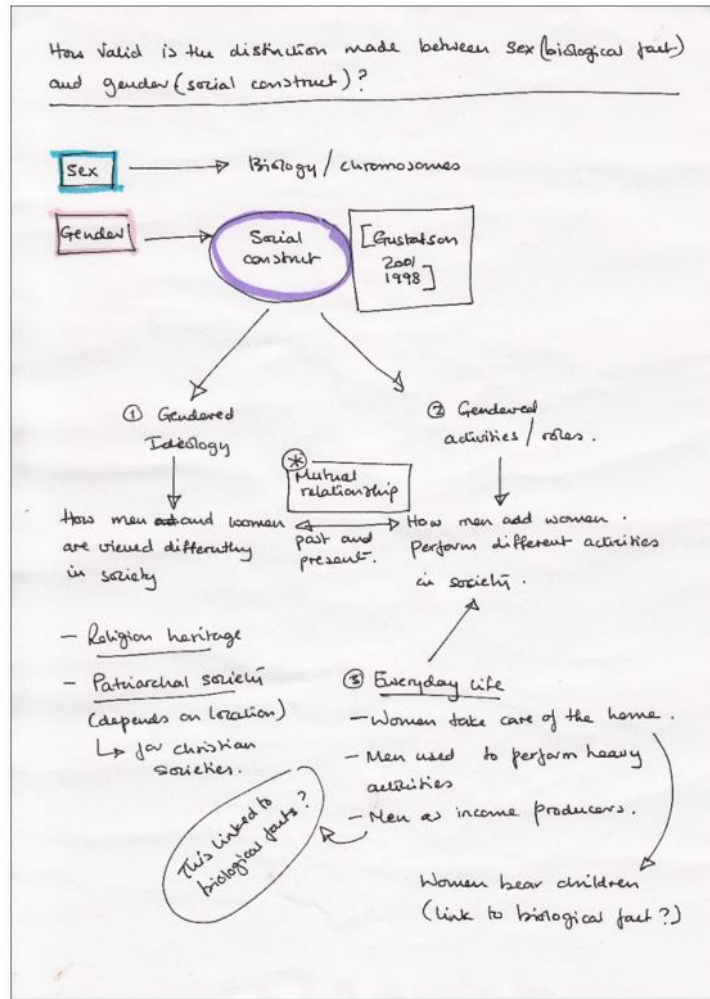 How valid is the distinction made between sex (biological fact)
and gender (social construct)?
Sex
Biology / chromosomes
Gender
Social
construct
[Gustafson
2001
1998]
① Gendered
Ideology
② Gendered
activities / roles.
*
Mutual
relationship
How men and women
are viewed differently
in society
past and
present.
How men add women.
Perform different activities
in society.
- Religion heritage
- Patriarchal society
(depends on location)
↳ for christian
societies.
③ Everyday life
- Women take care of the home.
- Men used to perform heavy
activities
- Men as income producers.
This linked to
biological facts?
Women bear children
(link to biological fact?)